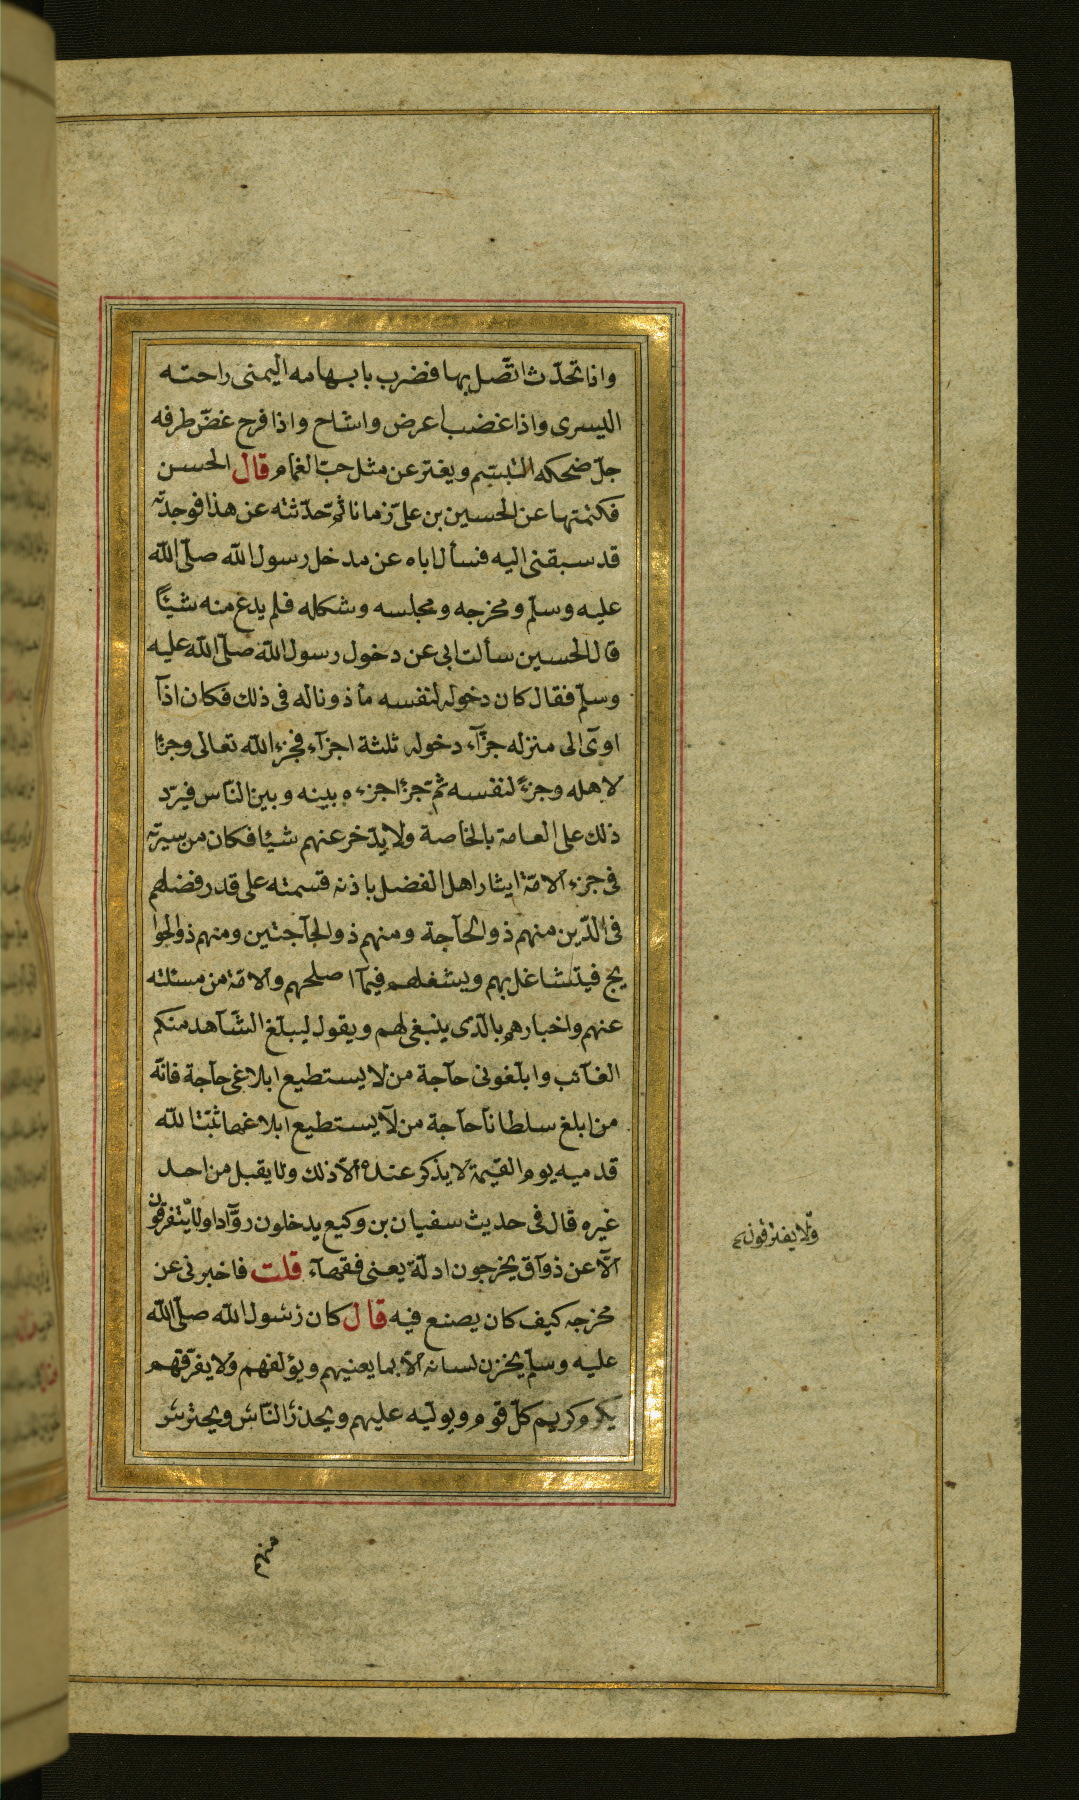 واذا تحدّث اتّصل بها فضرب بابهامه اليمنى راحته
اليسرى واذا غضب اعرض واشاح واذا فرح غضّ طرفه
جلّ ضحكه التبسّم ويفتر عن مثل حبّ الغمام قال الحسن
فكتمتها عن الحسين بن علىّ زمانا ثمّ حدّثته عن هذا فوجدته
قد سبقنى اليه فسأل اباه عن مدخل رسول الله صلّى الله
عليه وسلّم ومخرجه ومجلسه وشكله فلم يدع منه شيئًا
قال الحسين سألت ابى عن دخول رسول الله صلّى الله عليه
وسلّم فقال كان دخوله لنفسه مأذونا له فى ذلك فكان اذآ
اوى الى منزله جزّآء دخوله ثلثة اجزآء فجزء الله تعالى وجزءًا
لاهله وجزءً لنفسه ثمّ تجزء اجزءه بينه وبين النّاس فيردّ
ذلك على العامة بالخاصة ولا يدّخر عنهم شيئا فكان من سيرته
فى جزء الامّة ايثار اهل الفضل باذنه قسمته على قدر فضلهم
فى الدّين منهم ذو الحآجة ومنهم ذو الحآجتين ومنهم ذو الحوا
يج فيتشاغل بهم ويشغلهم فيمآ اصلحهم والامّة من مسئلته
عنهم واخبارهم بالّذى ينبغى لهم ويقول ليبلّغ الشّاهد منكم
الغآئب وابلّغونى حآجة من لا يستطيع ابلاغى حآجة فانّه
من ابلغ سلطانا حآجة من لآ يستطيع ابلاغها ثبّتا لله
قدميه يوم القيمة لا يذكر عنده الّا ذلك ولا يقبل من احد
غيره قال فى حديث سفيان بن وكيع يدخلون روّآدا ولا يتفرقون
الّا عن ذوآق يخرجون ادلّة يعنى فقهآء قلت فاخبرنى عن
مخرجه كيف كان يصنع فيه قال كان رسول الله صلّى الله
عليه وسلّم يخزن لسانه الّا بما يعنيهم ويؤلفهم ولا يفرّقهم
يكرم كريم كلّ قوم ويوليه عليهم ويحذر النّاس ويحترس
ولا يفترقون
منهم